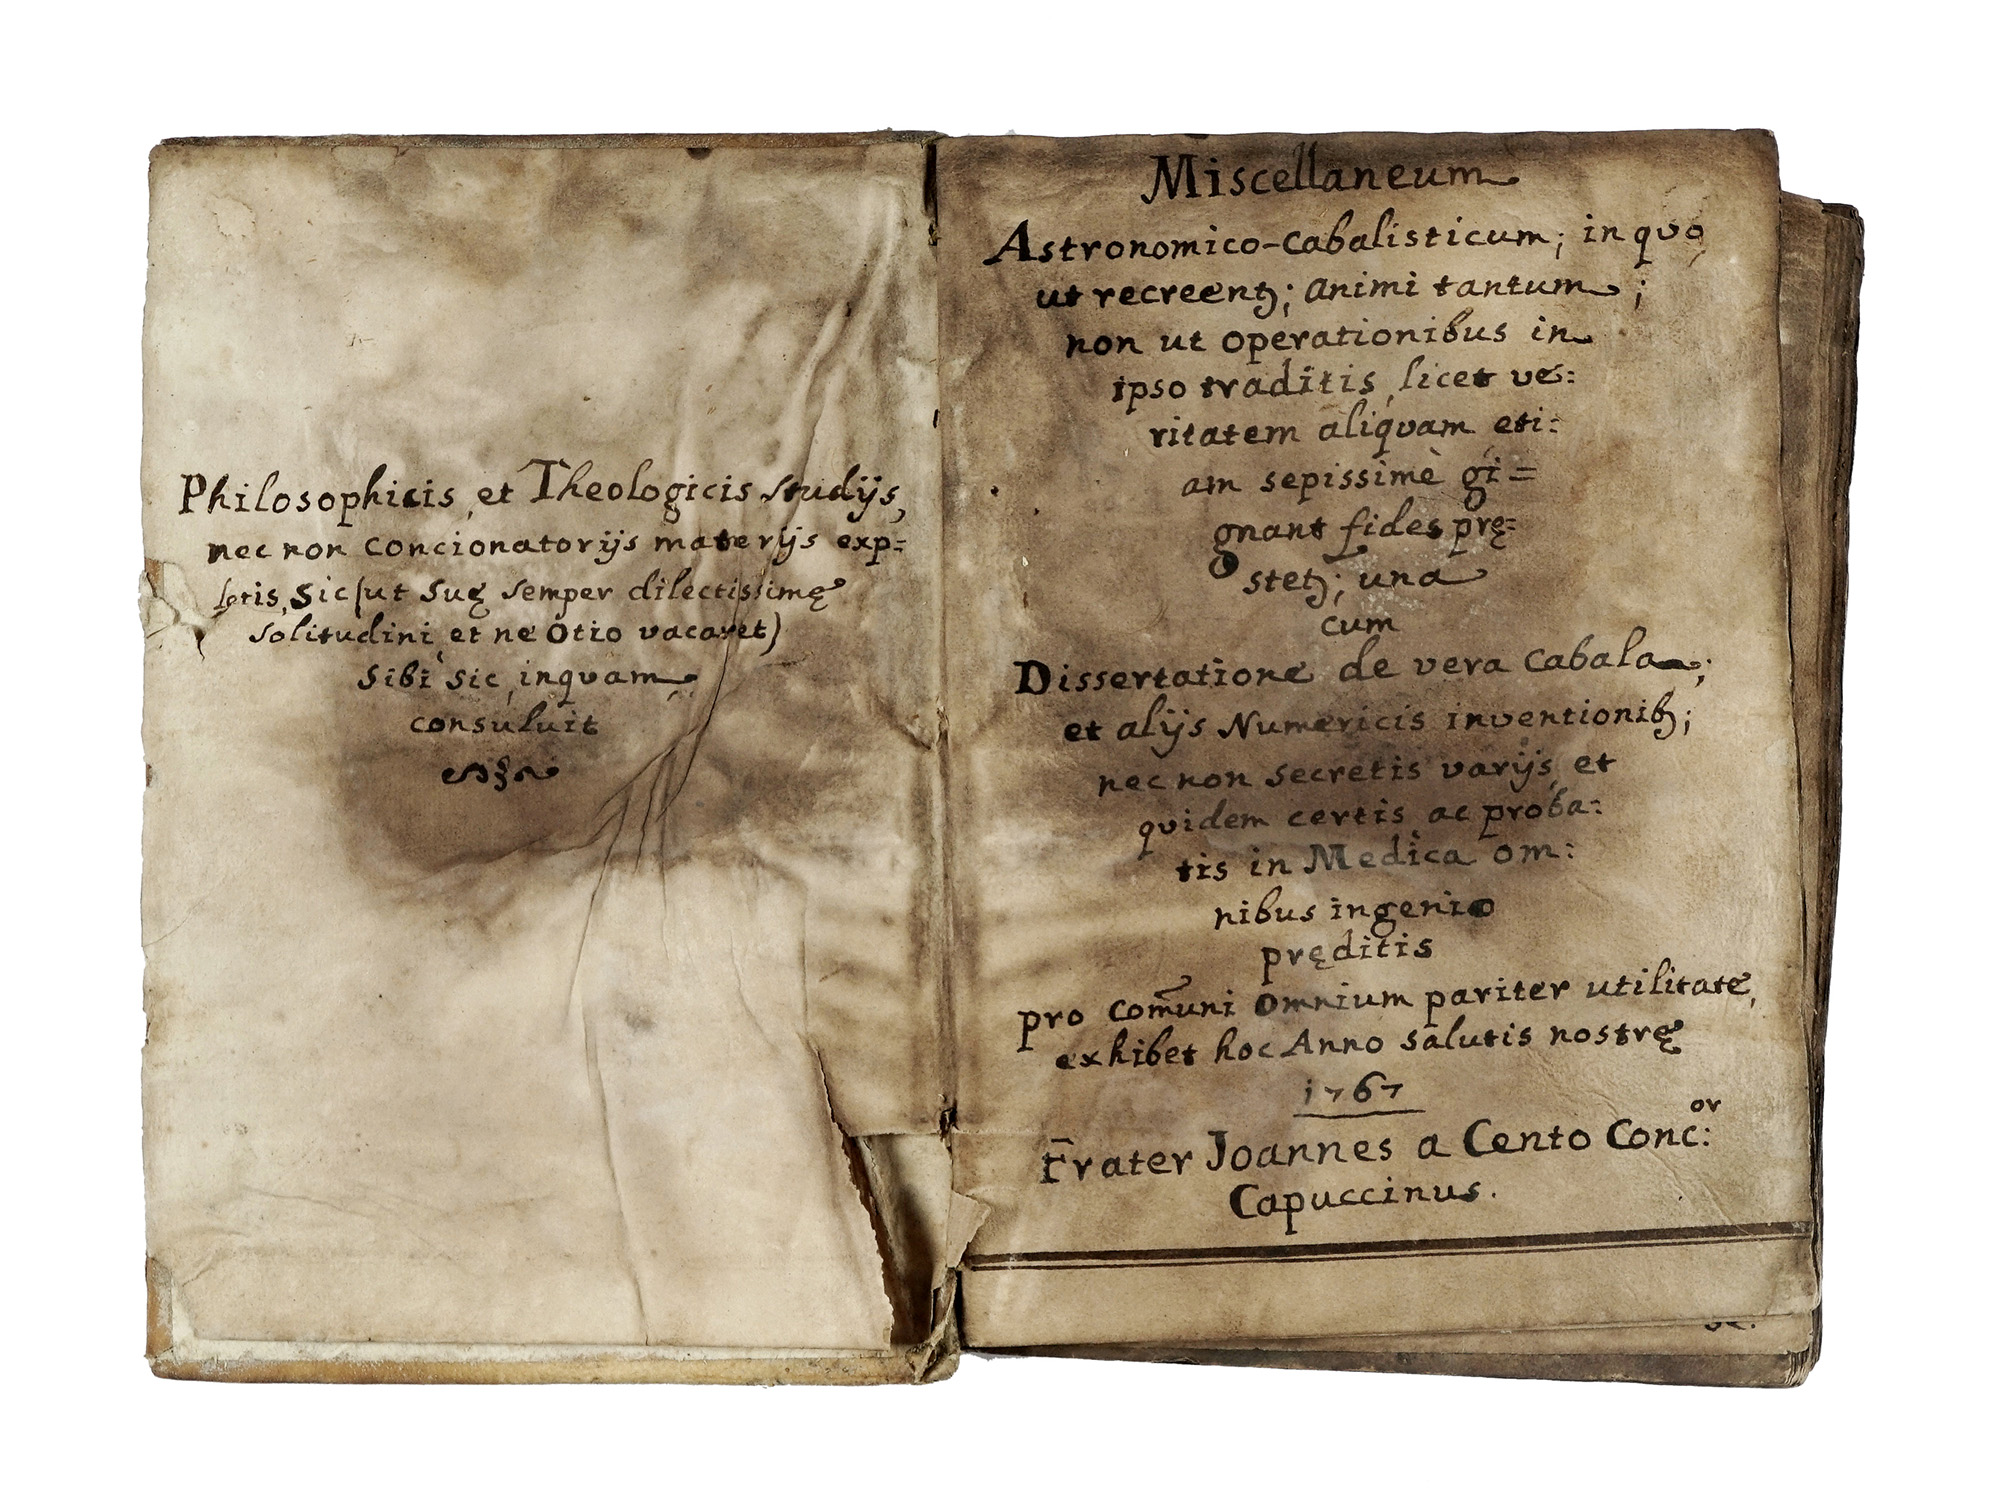 Philosophicis, et Theologicis studijs,
nec non concionatorijs materijs exp=
letis, sic (ut suę semper dilectissimę
solitudini, et ne ótio vacaret)
sibi sic, inquam,
consuluit
Miscellaneum
Astronomico-cabalisticum; in quo,
ut recreentꝫ; animi tantum;
non ut operationibus in
ipso traditis, licet ve:
ritatem aliquam eti:
am sepissimè gi=
gnant fides prę:
stetꝫ; una
cum
Dissertatione de vera cabala;
et alijs Numericis inventionibꝫ;
nec non secretis varijs, et
quidem certis ac proba:
tis in Medica om:
nibus ingenio
pręditis
pro com̃uni omnium pariter utilitate,
exhibet hoc Anno salutis nostrę
1767
F̄rater Joannes a Cento Conc:or
Capuccinus.